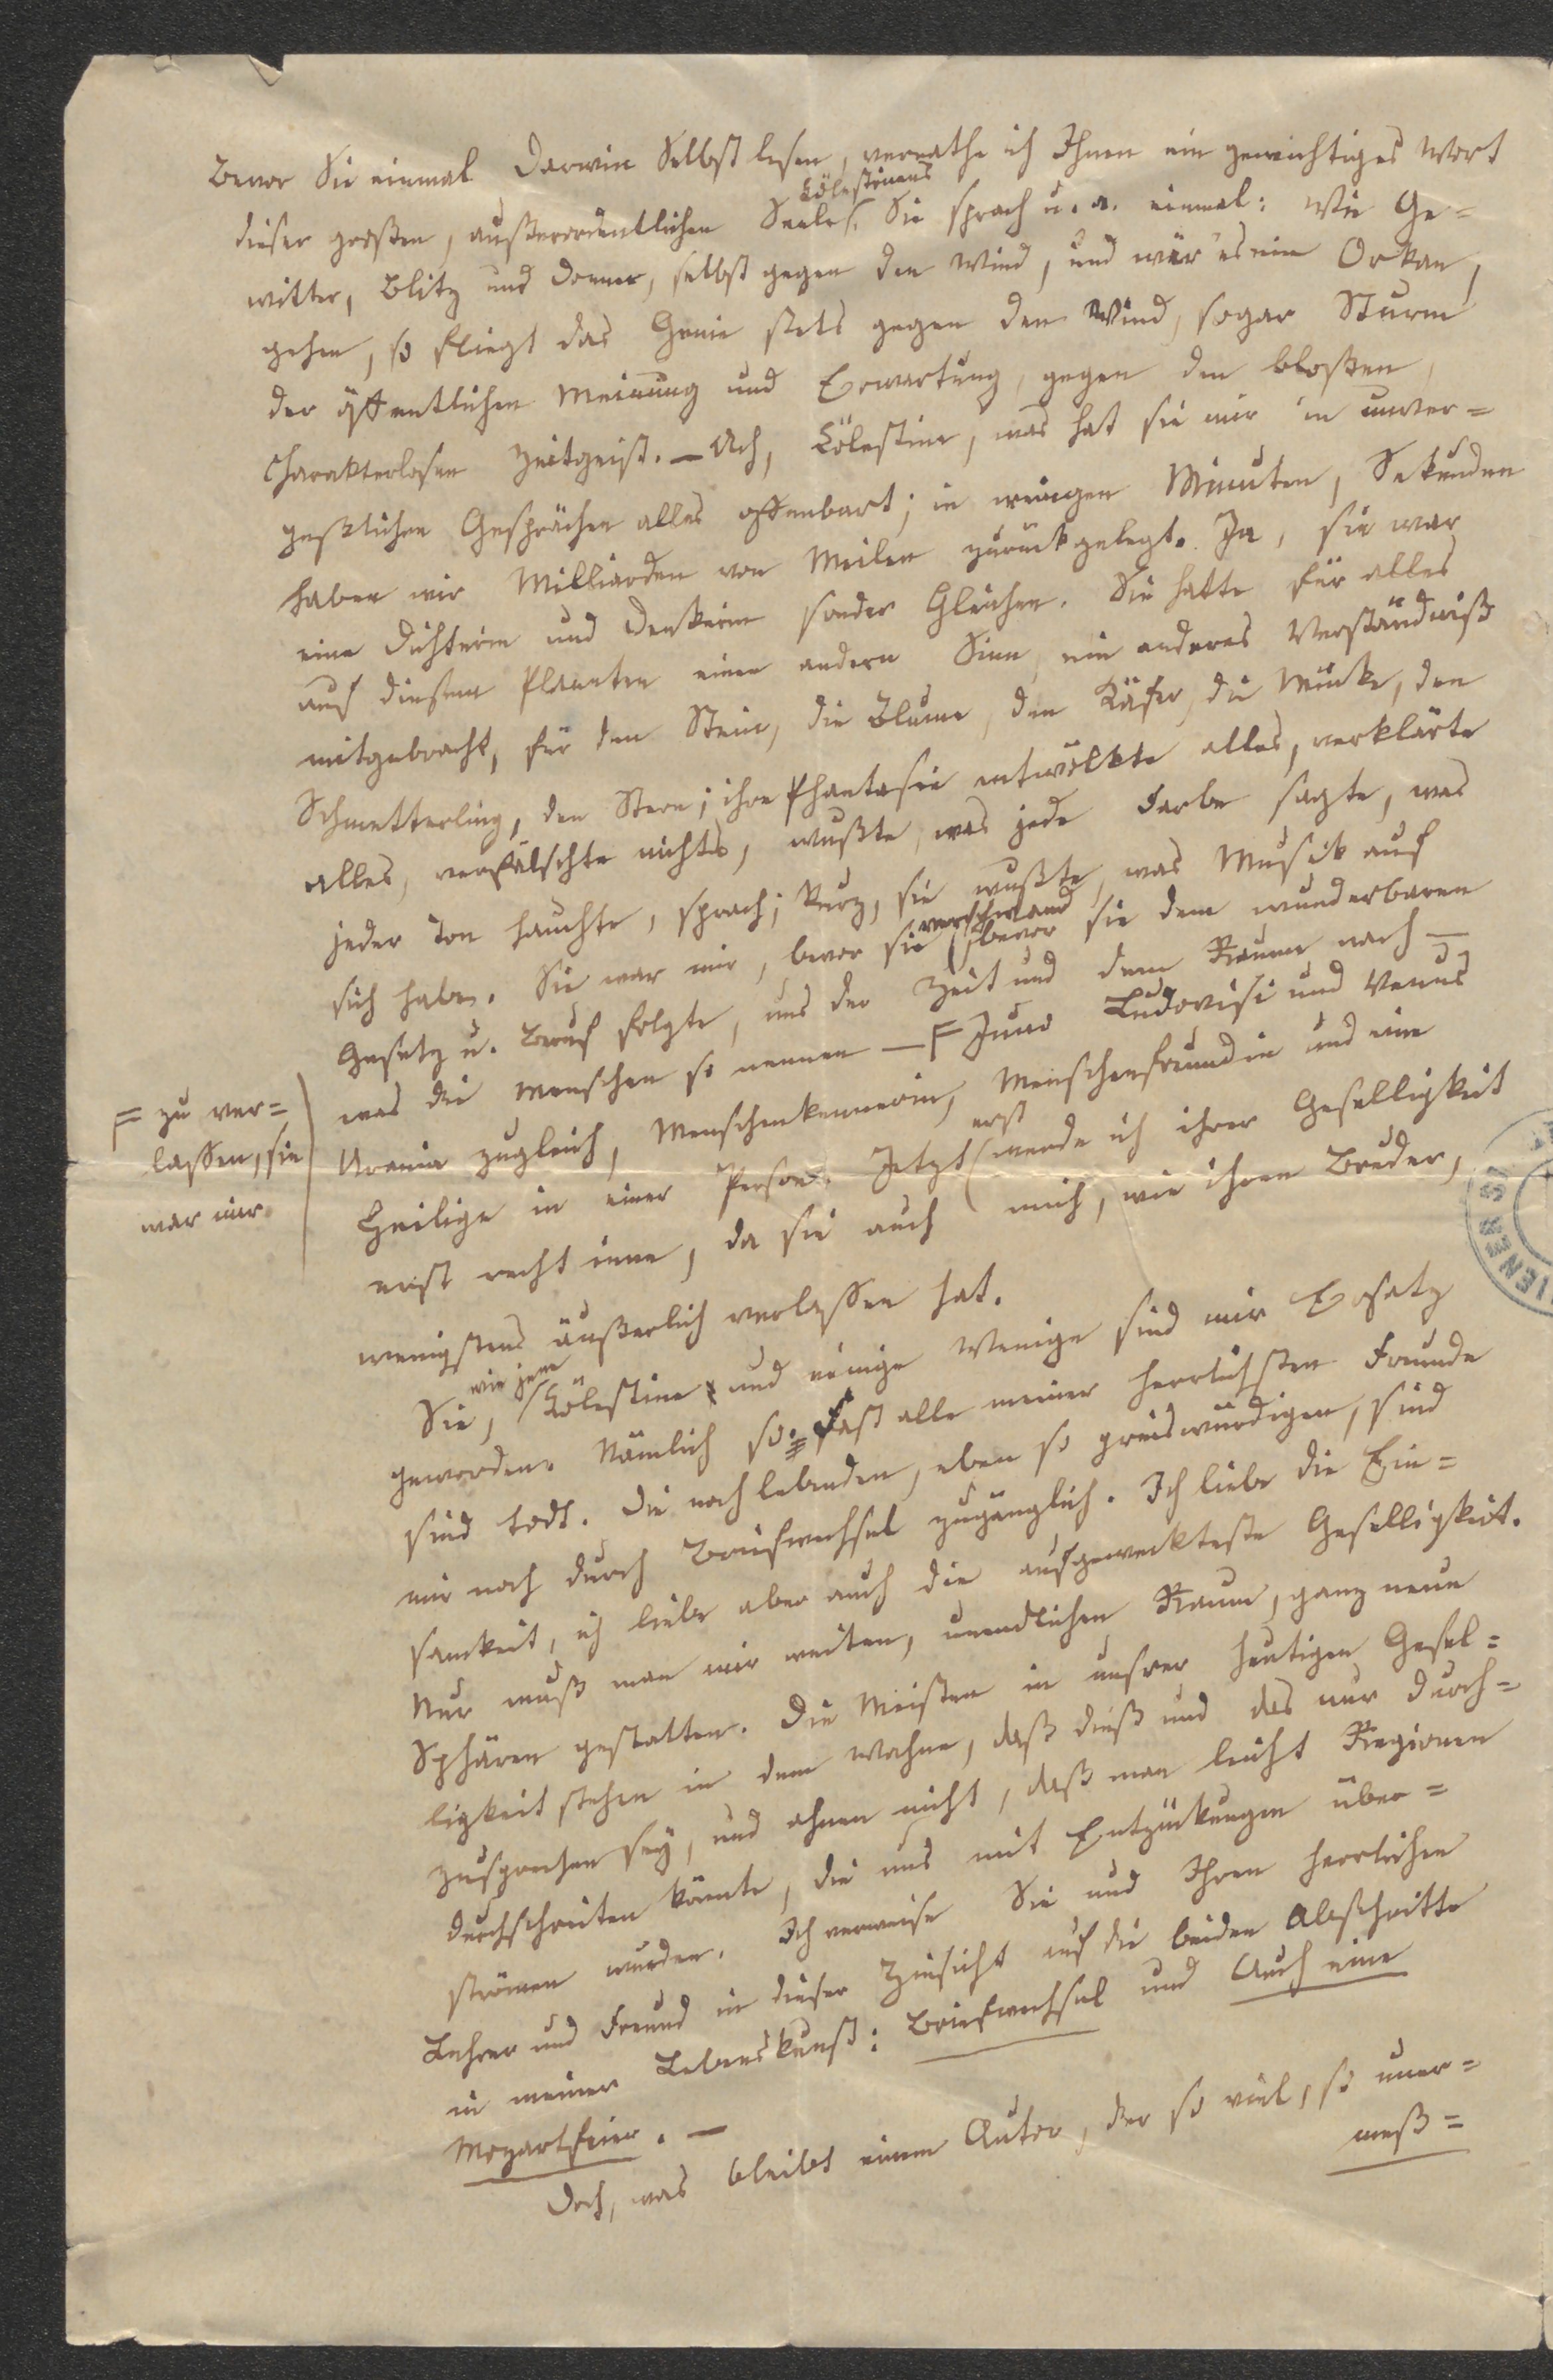 Bevor Sie einmal Darwin Selbst lesen, verrathe ich Ihnen ein gewichtiges Wort
Cölestinens
dieser großen, außerordentlichen Seele. Sie sprach u. a. einmal: Wie Ge=
witter, Blitz und Donner, selbst gegen den Wind, und wär' es ein Orkan,
gehen, so fliegt das Genie stets gegen den Wind, sogar Sturm
der öffentlichen Meinung und Erwartung, gegen den bloßen,
charakterlosen Zeitgeist. — Ach, Cölestine, was hat sie mir in unver=
geßlichen Gesprächen alles offenbart; in wenigen Minuten, Sekunden
haben wir Milliarden von Meilen zurückgelegt. Ja, sie war
eine Dichterin und Denkerin sonder Gleichen. Sie hatte für alles
auf diesem Planeten einen andern Sinn, ein anderes Verständniß
mitgebracht, für den Stein, die Blume, den Käfer, die Mücke, den
Schmetterling, den Stern; ihre Phantasie entwölkte alles, verklärte
alles, verfälschte nichts, wußte, was jede Farbe sagte, was
jeder Ton hauchte, sprach; kurz, sie wußte, was Musik auf
verschwand
sich habe. Sie war mir, bevor sie bevor sie dem wunderbaren
Gesetz u. Beruf folgte, uns der Zeit und dem Raume nach —
was die Menschen so nennen — F Juno Ludovisi und Venus
F zu ver=
lassen, sie
war mir
Urania zugleich, Menschenkennerin, Menschenfreundin und eine
erst
Heilige in einer Person. Jetzt werde ich ihrer Geselligkeit
erst recht inne, da sie auch mich, wie ihren Bruder,
wenigstens äußerlich verlassen hat.
wie jene
Sie, Cölestine und einige Wenige sind mir Ersatz
geworden. Nämlich so: Fast alle meiner herrlichsten Freunde
sind todt. Die noch lebenden, eben so preiswürdigen, sind
mir noch durch Briefwechsel zugänglich. Ich liebe die Ein=
samkeit, ich liebe aber auch die aufgeweckteste Geselligkeit.
Nur muß man mir weiten, unendlichen Raum, ganz neue
Sphären gestatten. Die Meisten in unsrer heutigen Gesel=
ligkeit stehen in dem Wahne, daß dieß und das nur durch=
zusprechen sey, und ahnen nicht, daß man leicht Regionen
durchschreiten könnte, die uns mit Entzückungen über=
strömen würden. Ich verweise Sie und Ihren herrlichen
Lehrer und Freund in dieser Hinsicht auf die beiden Abschnitte
in meiner Lebenskunst: Briefwechsel und Auch eine
Mozartfeier. —
Doch, was bleibt einem Autor, der so viel, so uner=
meß=